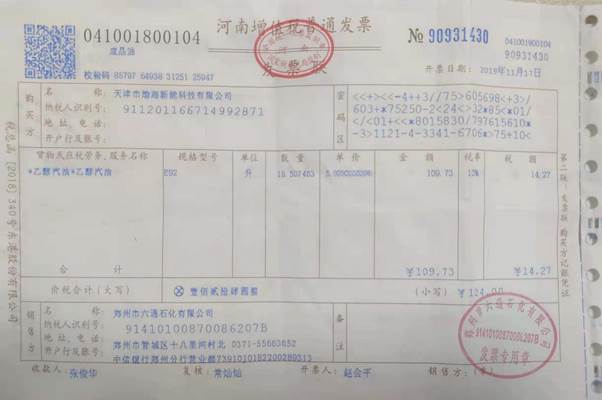 041001800104
河南增值税普通发票
№ 90931430
041001800104
90931430
成品油
发票联
校验码 85797 64938 31251 25947
开票日期: 2019年11月17日
购买方
名称: 天津市渤海新能科技有限公司
纳税人识别号: 911201166714992871
地址、电话:
开户行及账号:
密码区
<<+><<-4++3//75>605698<+3>/
603+*75250-2<24<>32*85<*01/
/<01+<<*8015830/797615610*
-3>1121-4-3341-6706*>75+10<
货物或应税劳务、服务名称 规格型号 单位 数量 单价 金额 税率 税额
*乙醇汽油*乙醇汽油 E92 升 109.73 13% 14.27
合计 ¥109.73 ¥14.27
价税合计(大写) ⊗ 壹佰贰拾肆圆整 (小写) ¥124.00
销售方
名称: 郑州市六通石化有限公司
纳税人识别号: 91410100870086207B
地址、电话: 郑州市管城区十八里河村北 0371-55663652
开户行及账号: 中信银行郑州分行营业部7391010182200289313
备注
收款人: 张俊华 复核: 常灿灿 开票人: 赵会平 销售方:(章)
郑州市六通石化有限公司
91410100870086207B
发票专用章
第二联:发票联 购买方记账凭证